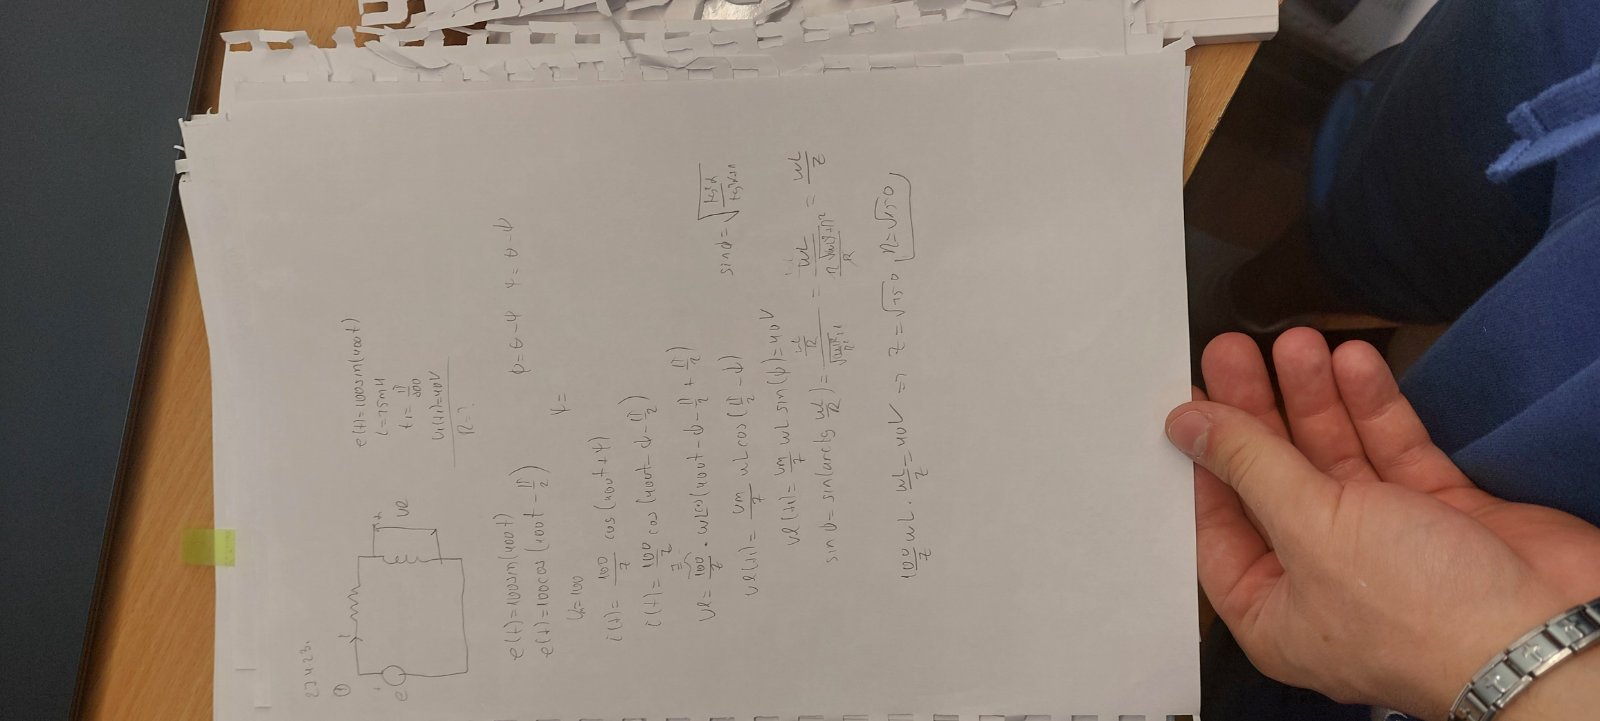 27.4.23.
①
e(t)=100sin(400t)
L=75mH
t₁=π/800
UL(t₁)=40V
R=?
+
e
+
UL
e(t)=100sin(400t)
e(t)=100cos(400t-π/2)
φ=θ-ψ ψ=θ-φ
U=100
ψ=
i(t)=100/Z cos(400t+ψ)
i(t)=100/Z cos(400t-φ-π/2)
UL=100/Z · ωL cos(400t-φ-π/2+π/2)
UL(t₁)=Um/Z ωL cos(π/2-φ)
sinφ=√(tg²α/(tg²α+1))
UL(t₁)=Um/Z ωL sin(φ)=40V
sinφ=sin(arctg ωL/R)= = =ωL/Z
100/Z ωL·ωL/Z=40V => Z=√ R=√